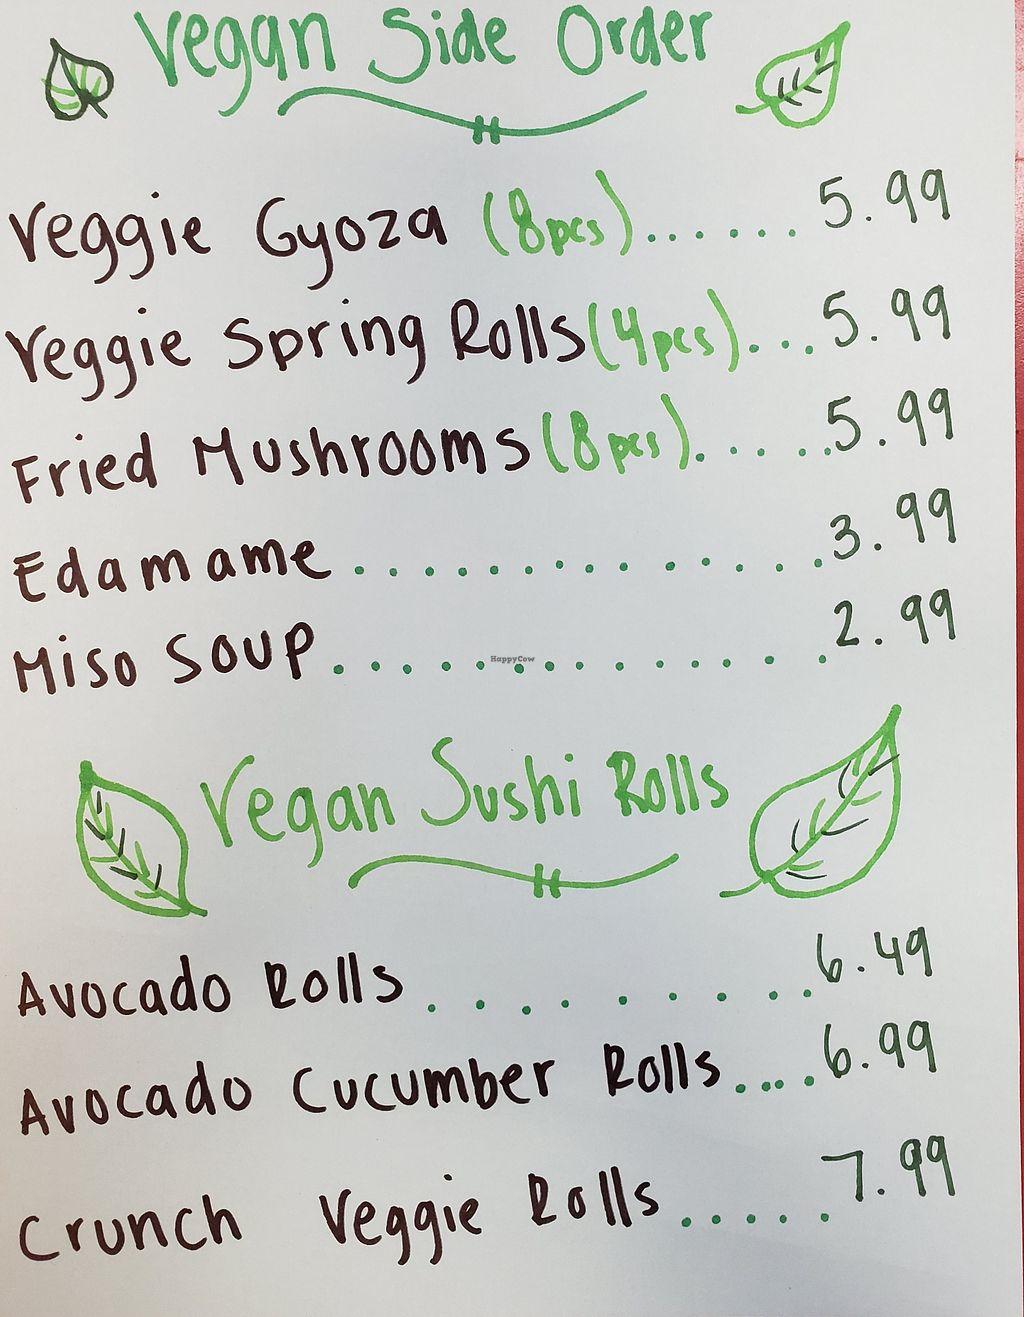 Vegan Side Order
Veggie Gyoza (8pcs)...... 5.99
Veggie Spring Rolls (4pcs)... 5.99
Fried Mushrooms (8pcs)...... 5.99
Edamame.............. 3.99
Miso Soup.............. 2.99
HappyCow
Vegan Sushi Rolls
Avocado Rolls........ 6.49
Avocado Cucumber Rolls.... 6.99
Crunch Veggie Rolls..... 7.99